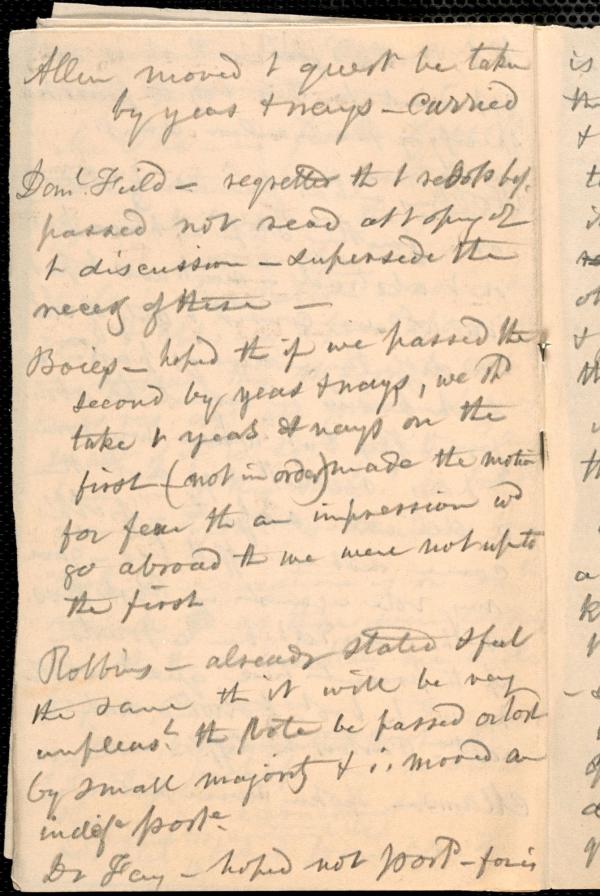 Allen moved t quest be taken
by yeas & nays - carried
Dan^l. Field - regretted th t
passed not read at t op^g of
t discussion - supersede the
necess^y of these -
Boies - hoped th if we passed the
second by yeas & nays, we sh^d
take t yeas & nays on the
first (not in order) made the motion
for fear th an impression w^d
go abroad th we were not up to
the first
Robbins - already stated & feel
the same th it will be very
unpleas^t. th Vote be passed or lost
by small majority & moved an
indef^e post^e.
Dr Fay - hoped not post^d - for is
is
the
&